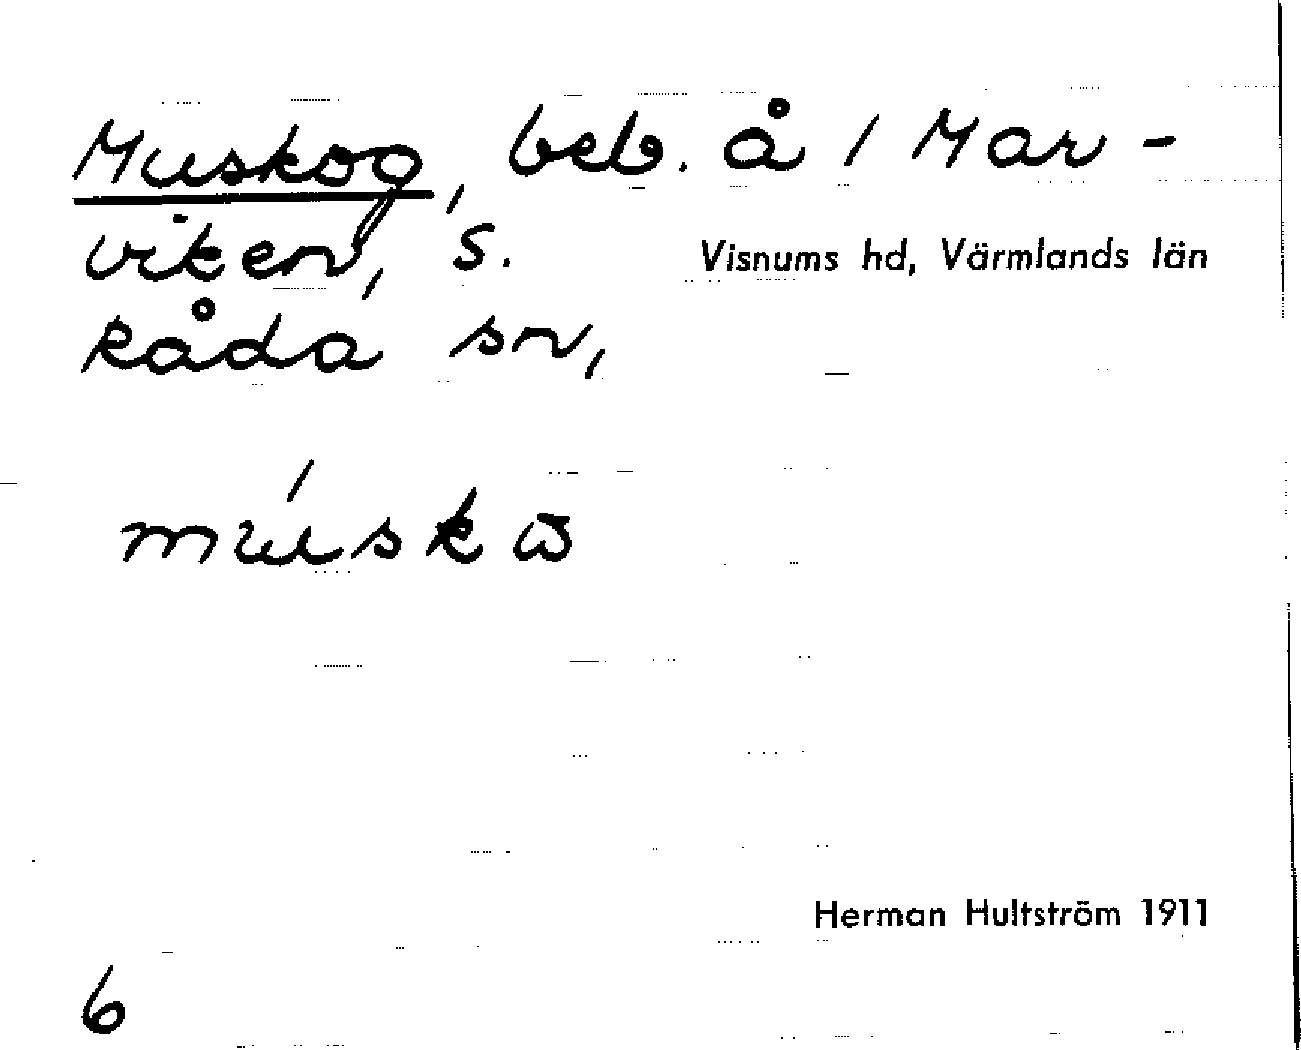 Muskog, beb. å 1 Mar-
viken, S.
Råda sn,
Visnums hd, Värmlands län
Herman Hultström 1911
6